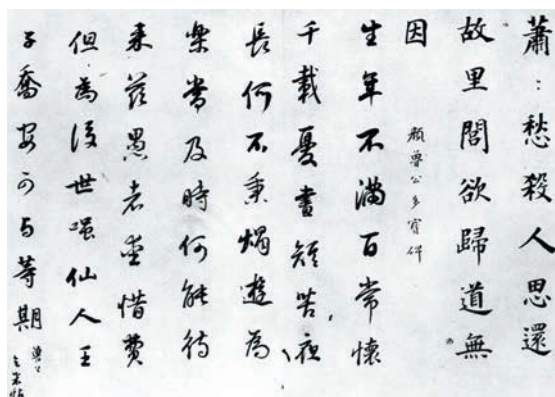 蕭〻愁殺人思還
故里閭欲歸道無
因
顏魯公多寶碑
生年不滿百常懷
千載憂晝短苦夜
長何不秉燭遊為
樂當及時何能待
來茲愚者愛惜費
但為後世嗤仙人王
子喬安可与等期
魯公